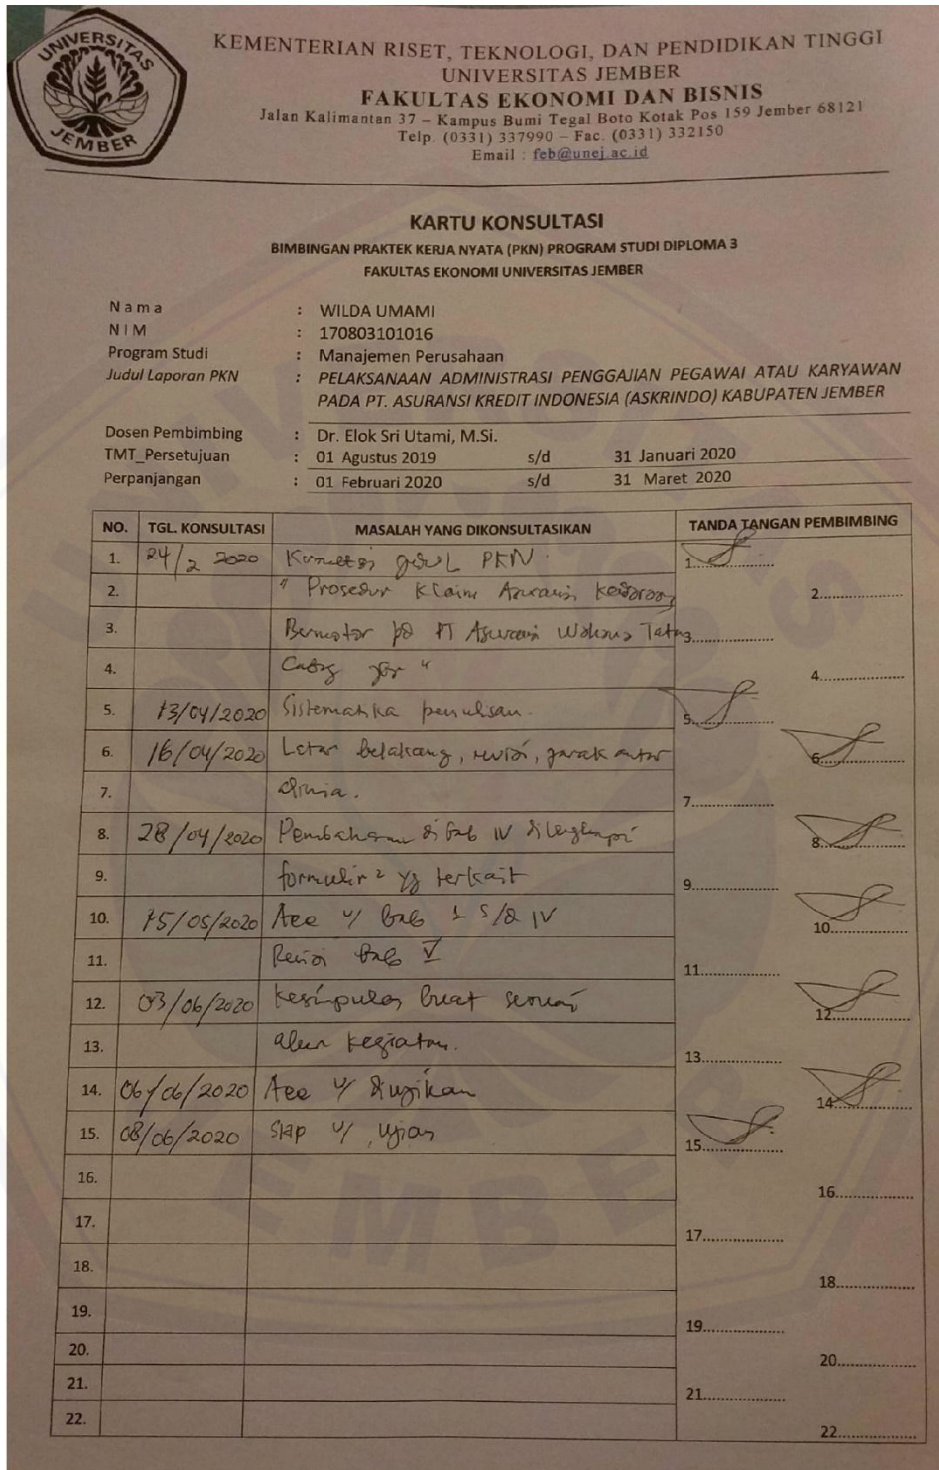 UNIVERSITAS
JEMBER
KEMENTERIAN RISET, TEKNOLOGI, DAN PENDIDIKAN TINGGI
UNIVERSITAS JEMBER
FAKULTAS EKONOMI DAN BISNIS
Jalan Kalimantan 37 – Kampus Bumi Tegal Boto Kotak Pos 159 Jember 68121
Telp. (0331) 337990 – Fac. (0331) 332150
Email : feb@unej.ac.id
KARTU KONSULTASI
BIMBINGAN PRAKTEK KERJA NYATA (PKN) PROGRAM STUDI DIPLOMA 3
FAKULTAS EKONOMI UNIVERSITAS JEMBER
N a m a : WILDA UMAMI
N I M : 170803101016
Program Studi : Manajemen Perusahaan
Judul Laporan PKN : PELAKSANAAN ADMINISTRASI PENGGAJIAN PEGAWAI ATAU KARYAWAN
PADA PT. ASURANSI KREDIT INDONESIA (ASKRINDO) KABUPATEN JEMBER
Dosen Pembimbing : Dr. Elok Sri Utami, M.Si.
TMT_Persetujuan : 01 Agustus 2019 s/d 31 Januari 2020
Perpanjangan : 01 Februari 2020 s/d 31 Maret 2020
NO. TGL. KONSULTASI MASALAH YANG DIKONSULTASIKAN TANDA TANGAN PEMBIMBING
1. 24/2 2020 PKN. 1..................
2. " Prosedur Klaim Asuransi 2..................
3. Bermotor pd PT Asuransi Wahana Tata 3..................
4. " 4..................
5. 13/04/2020 Sistematika penulisan. 5..................
6. 16/04/2020 Latar belakang, revisi, jarak antar 6..................
7. 7..................
8. 28/04/2020 Pembahasan di bab IV dilengkapi 8..................
9. formulir² yg terkait 9..................
10. 15/05/2020 Acc u/ bab 1 s/d IV 10..................
11. Revisi bab V 11..................
12. 03/06/2020 Kesimpulan buat sesuai 12..................
13. alur kegiatan. 13..................
14. 06/06/2020 Acc u/ diujikan 14..................
15. 08/06/2020 siap u/ ujian 15..................
16. 16..................
17. 17..................
18. 18..................
19. 19..................
20. 20..................
21. 21..................
22. 22..................